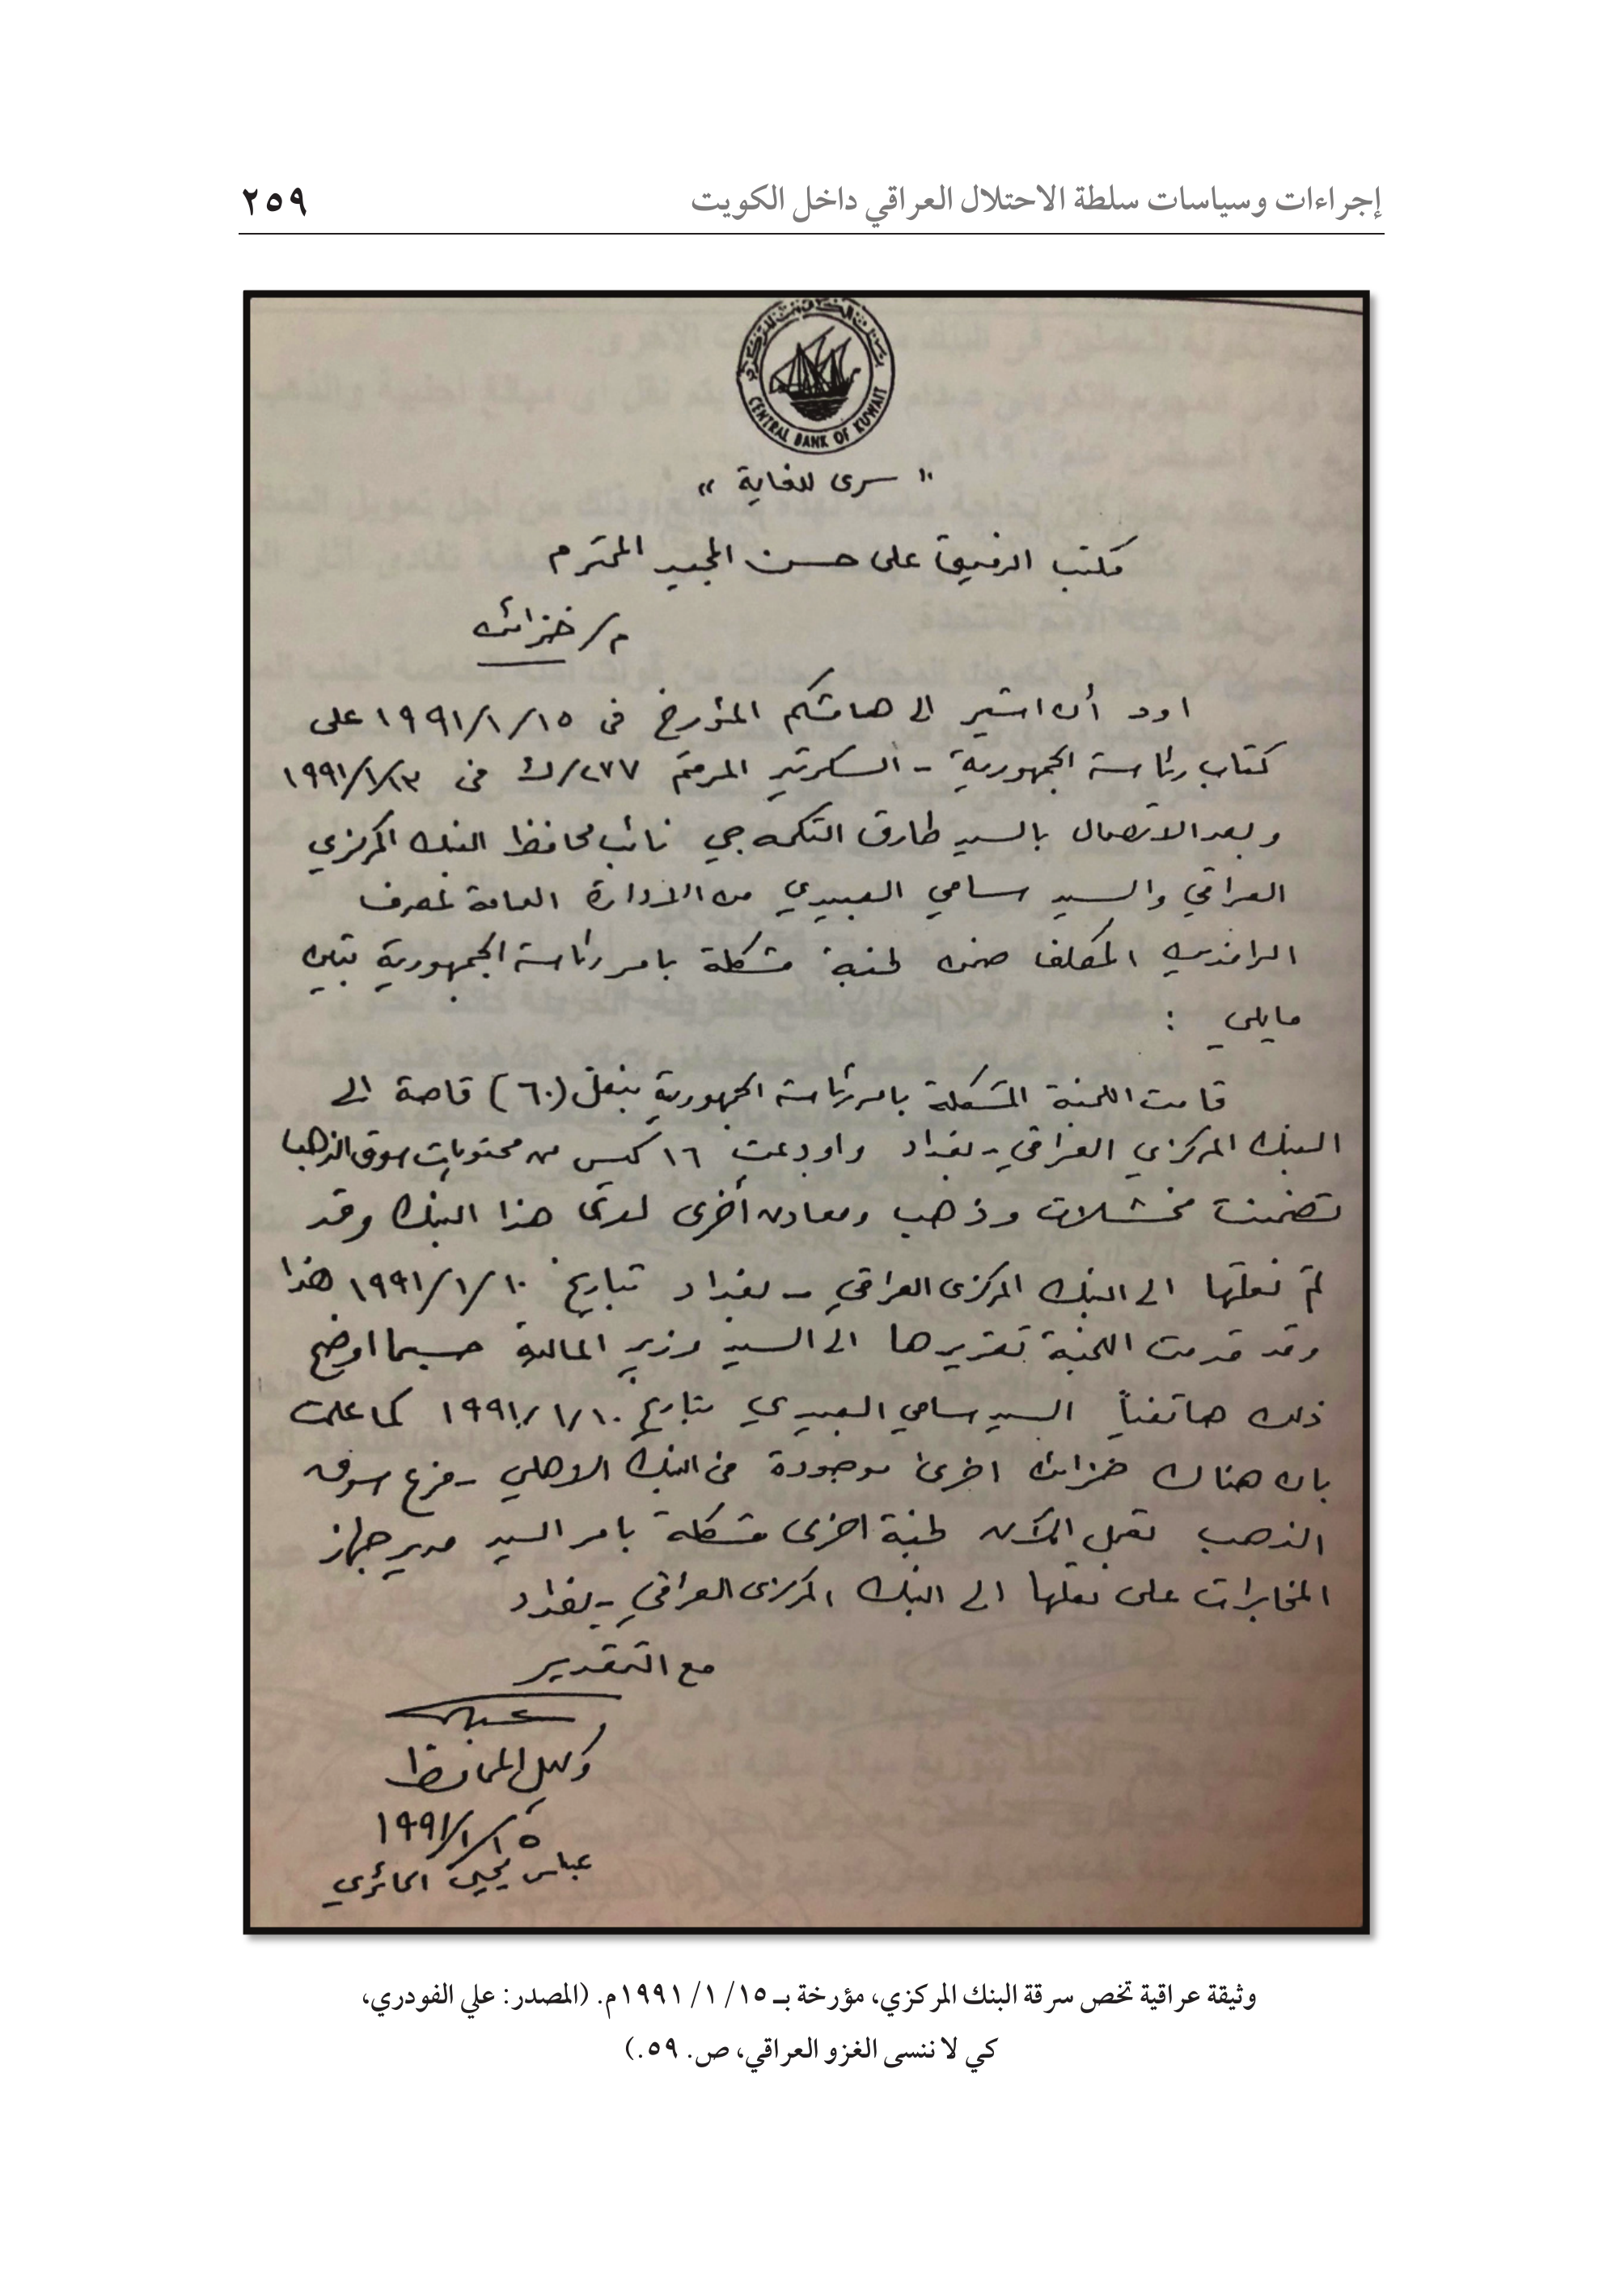 إجراءات وسياسات سلطة الاحتلال العراقي داخل الكويت
٢٥٩
CENTRAL BANK OF KUWAIT
" سرى للغاية "
مكتب الرفيق على حسن المجيد المحترم
م/ خزائن
اود أن اشير الى هامشكم المؤرخ فى ١٩٩١/١/١٥ على
كتاب رئاسة الجمهورية - السكرتير المرقم ٢٧٧/ك فى ١٩٩١/١/١٣
وبعد الاتصال بالسيد طارق التكمه جي نائب محافظ البنك المركزي
العراقي والسيد سامي العبيدي من الادارة العامة لمصرف
الرافدين المكلف ضمن لجنة مشكلة بامر رئاسة الجمهورية تبين
مايلي :
قامت اللجنة المشكلة بامر رئاسة الجمهورية بنقل (٦٠) قاصة الى
البنك المركزي العراقي - بغداد واودعت ١٦ كيس من محتويات سوق الذهب
تضمنت مخشلات وذهب ومعادن أخرى لدى هذا البنك وقد
تم نقلها الى البنك المركزى العراقي - بغداد بتاريخ ١٩٩١/١/١٠ هذا
وقد قدمت اللجنة تقريرها الى السيد وزير المالية حسبما اوضح
ذلك هاتفياً السيد سامي العبيدي بتاريخ ١٩٩١/١/١٠ كما علمت
بان هناك خزائن اخرى موجودة في البنك الاهلي - فرع سوق
الذهب تعمل الآن لجنة اخرى مشكلة بامر السيد مدير جهاز
المخابرات على نقلها الى البنك المركزى العراقي - بغداد
مع التقدير
وكيل المحافظ
١٩٩١/١/١٥
عباس يحيى الحائري
وثيقة عراقية تخص سرقة البنك المركزي، مؤرخة بـ ١٥/ ١/ ١٩٩١م. (المصدر: علي الفودري،
كي لا ننسى الغزو العراقي، ص. ٥٩.)